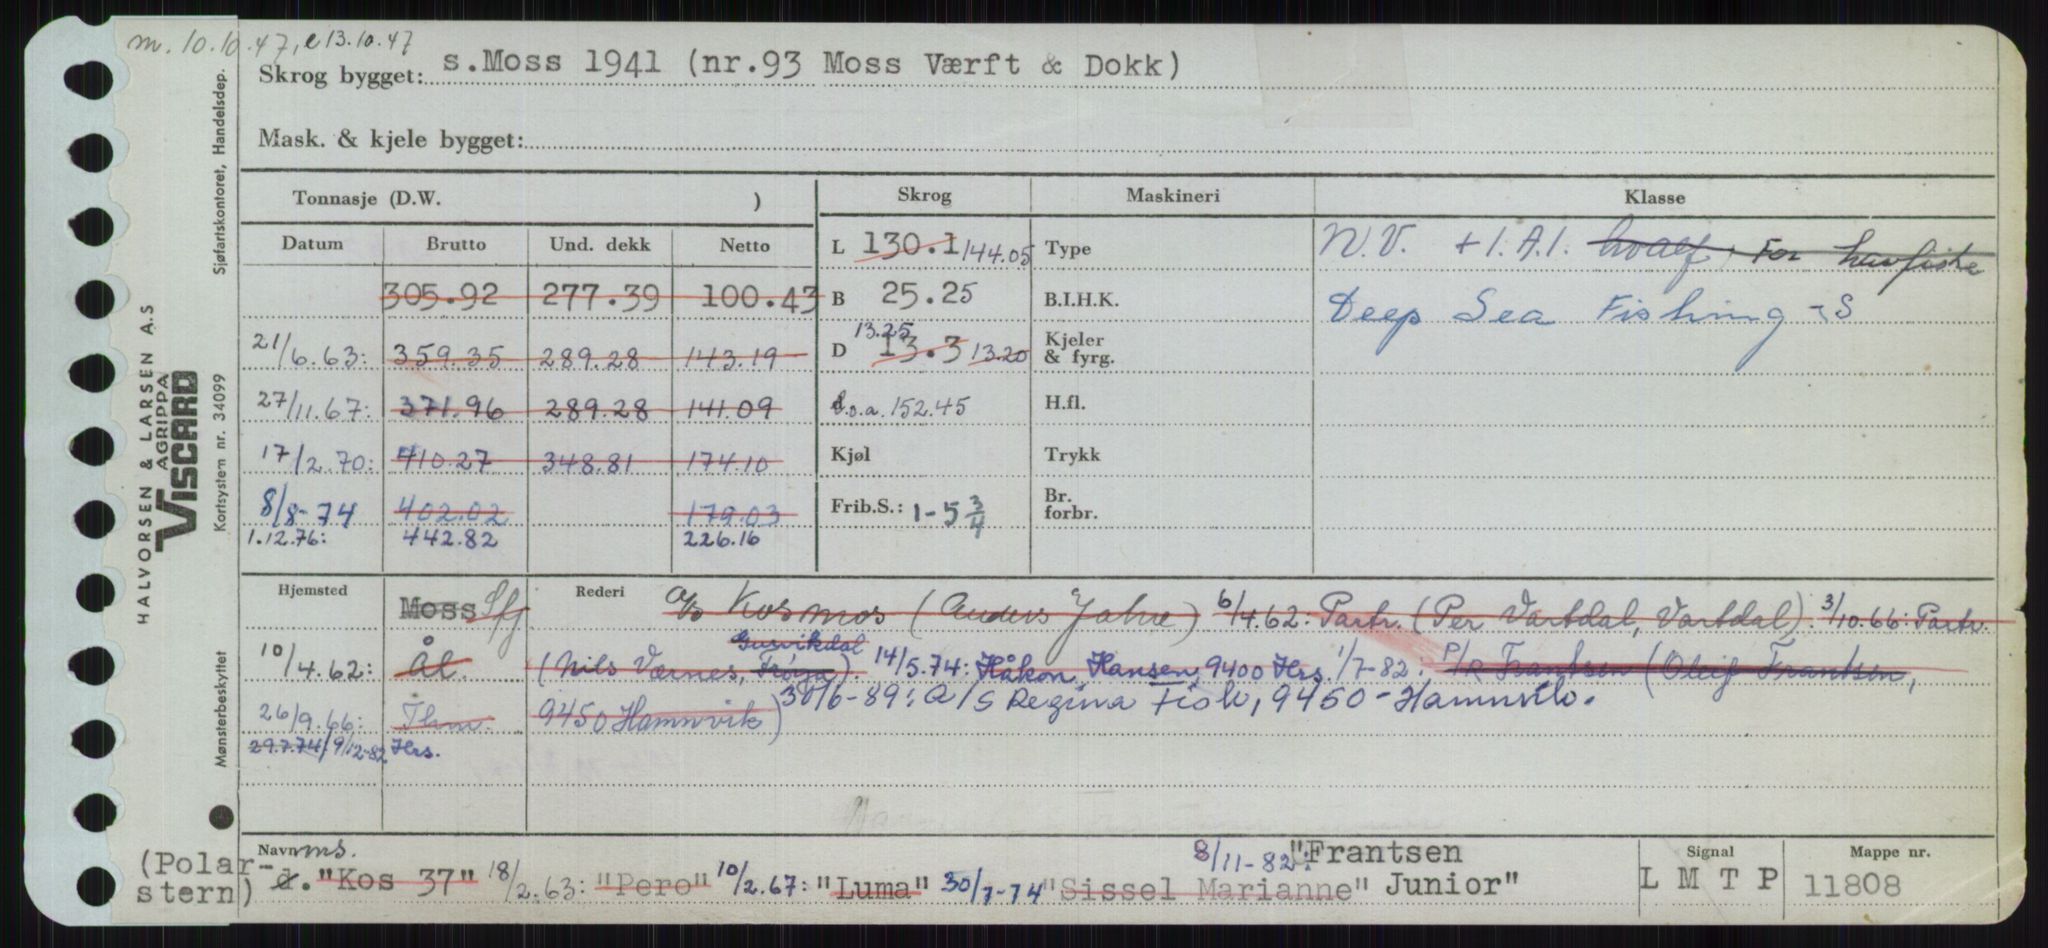 m. 10.10.47, e 13.10.47
Skrog bygget: s.Moss 1941 (nr.93 Moss Værft & Dokk)
Mask. & kjele bygget:
Tonnasje (D.W. ) Skrog Maskineri Klasse
Datum Brutto Und. dekk Netto L 130.1 144.05 Type N.V. + 1.A.1. hvalf, For havfiske
305.92 277.39 100.43 B 25.25 B.I.H.K. Deep Sea Fishing -S
21/6.63: 359.35 289.28 143.19 D 13.25 13.3 13.20 Kjeler & fyrg.
27/11.67: 371.96 289.28 141.09 l.o.a. 152.45 H.fl.
17/2.70: 410.27 348.81 174.10 Kjøl Trykk
8/8-74 402.02 179.03 Frib.S.: 1-5 3/4 Br. forbr.
1.12.76: 442.82 226.16
Hjemsted Moss Sfj Rederi A/S Kosmos (Anders Jahre) 6/4.62: Partr. (Per Vartdal, Vartdal). 3/10.66: Partr.
10/4.62: Ål. (Nils Værnes, Frøya). Gurvikdal 14/5.74: Håkon Hansen, 9400 Hrs. 1/7-82: P/R Frantsen (Oleif Frantsen,
26/9.66: Thm. 9450 Hamnvik) 30/6-89: A/S Regina Fisk, 9450-Hamnvik.
29.7.74/9/12-82 Hrs.
Navn ms. 8/11-82: "Frantsen Signal Mappe nr.
d. "Kos 37" 18/2.63: "Pero" 10/2.67: "Luma" 30/7-74 "Sissel Marianne" Junior" L M T P 11808
(Polar-
stern)
Sjøfartskontoret, Handelsdep.
HALVORSEN & LARSEN A.S
AGRIPPA
VISCARD
Kortsystem nr. 34099
Mønsterbeskyttet